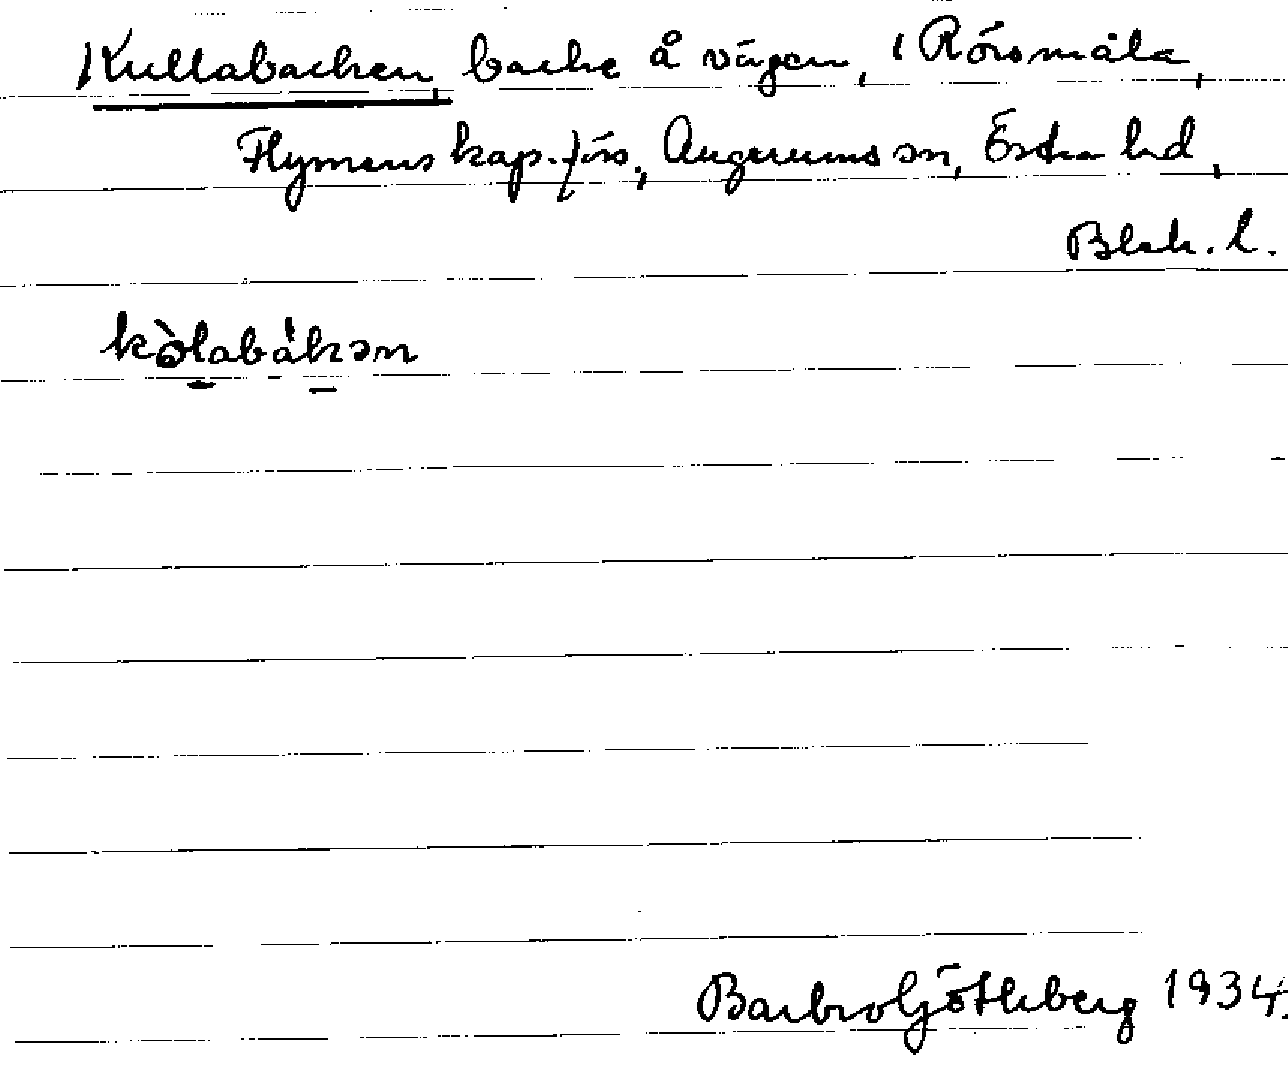 Kullabacken, backe å vägen, i Rörsmåla,
Flymens kap.förs., Augerums sn, Östra hd,
Blek. l.
kòlabákən
Barbro Götheberg 1934.